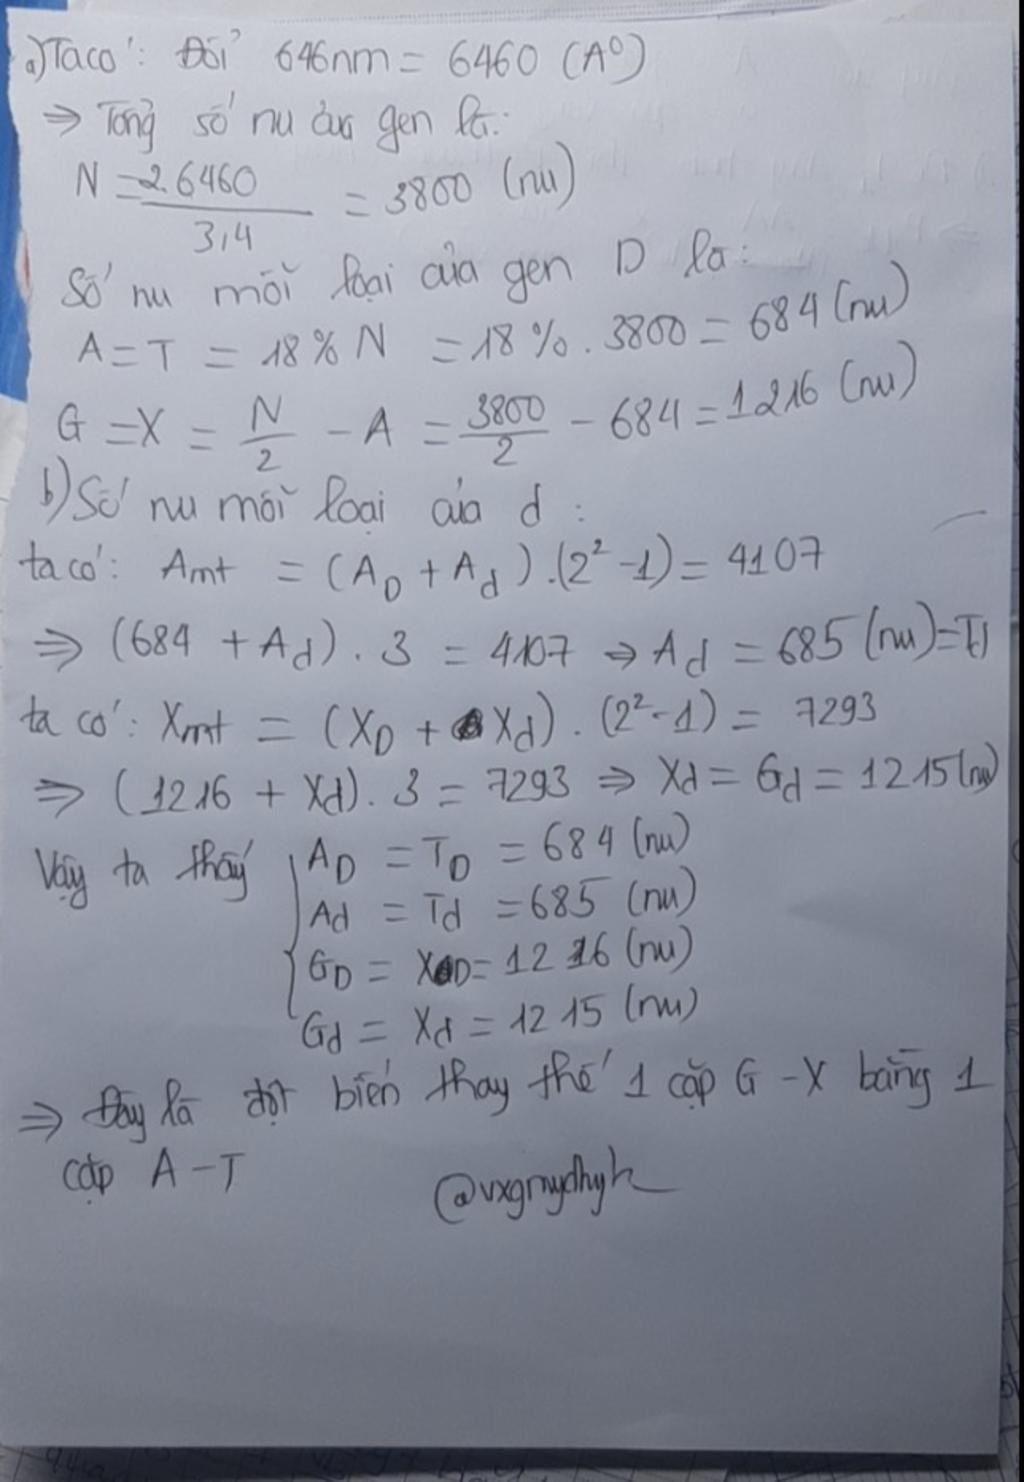 a) Ta có: Đổi 646nm = 6460 (A⁰)
⇒ Tổng số nu của gen là:
N = 2.6460 / 3,4 = 3800 (nu)
Số nu mỗi loại của gen D là:
A = T = 18% N = 18%. 3800 = 684 (nu)
G = X = N/2 - A = 3800/2 - 684 = 1216 (nu)
b) Số nu mỗi loại của d :
ta có: Amt = (A_D + A_d).(2² -1) = 4107
⇒ (684 + A_d). 3 = 4107 ⇒ A_d = 685 (nu) = T_d
ta có: Xmt = (X_D + X_d). (2² -1) = 7293
⇒ (1216 + X_d). 3 = 7293 ⇒ X_d = G_d = 1215 (nu)
Vậy ta thấy { A_D = T_D = 684 (nu)
A_d = T_d = 685 (nu)
G_D = X_D = 1216 (nu)
G_d = X_d = 1215 (nu)
⇒ Đây là đột biến thay thế 1 cặp G - X bằng 1
cặp A - T